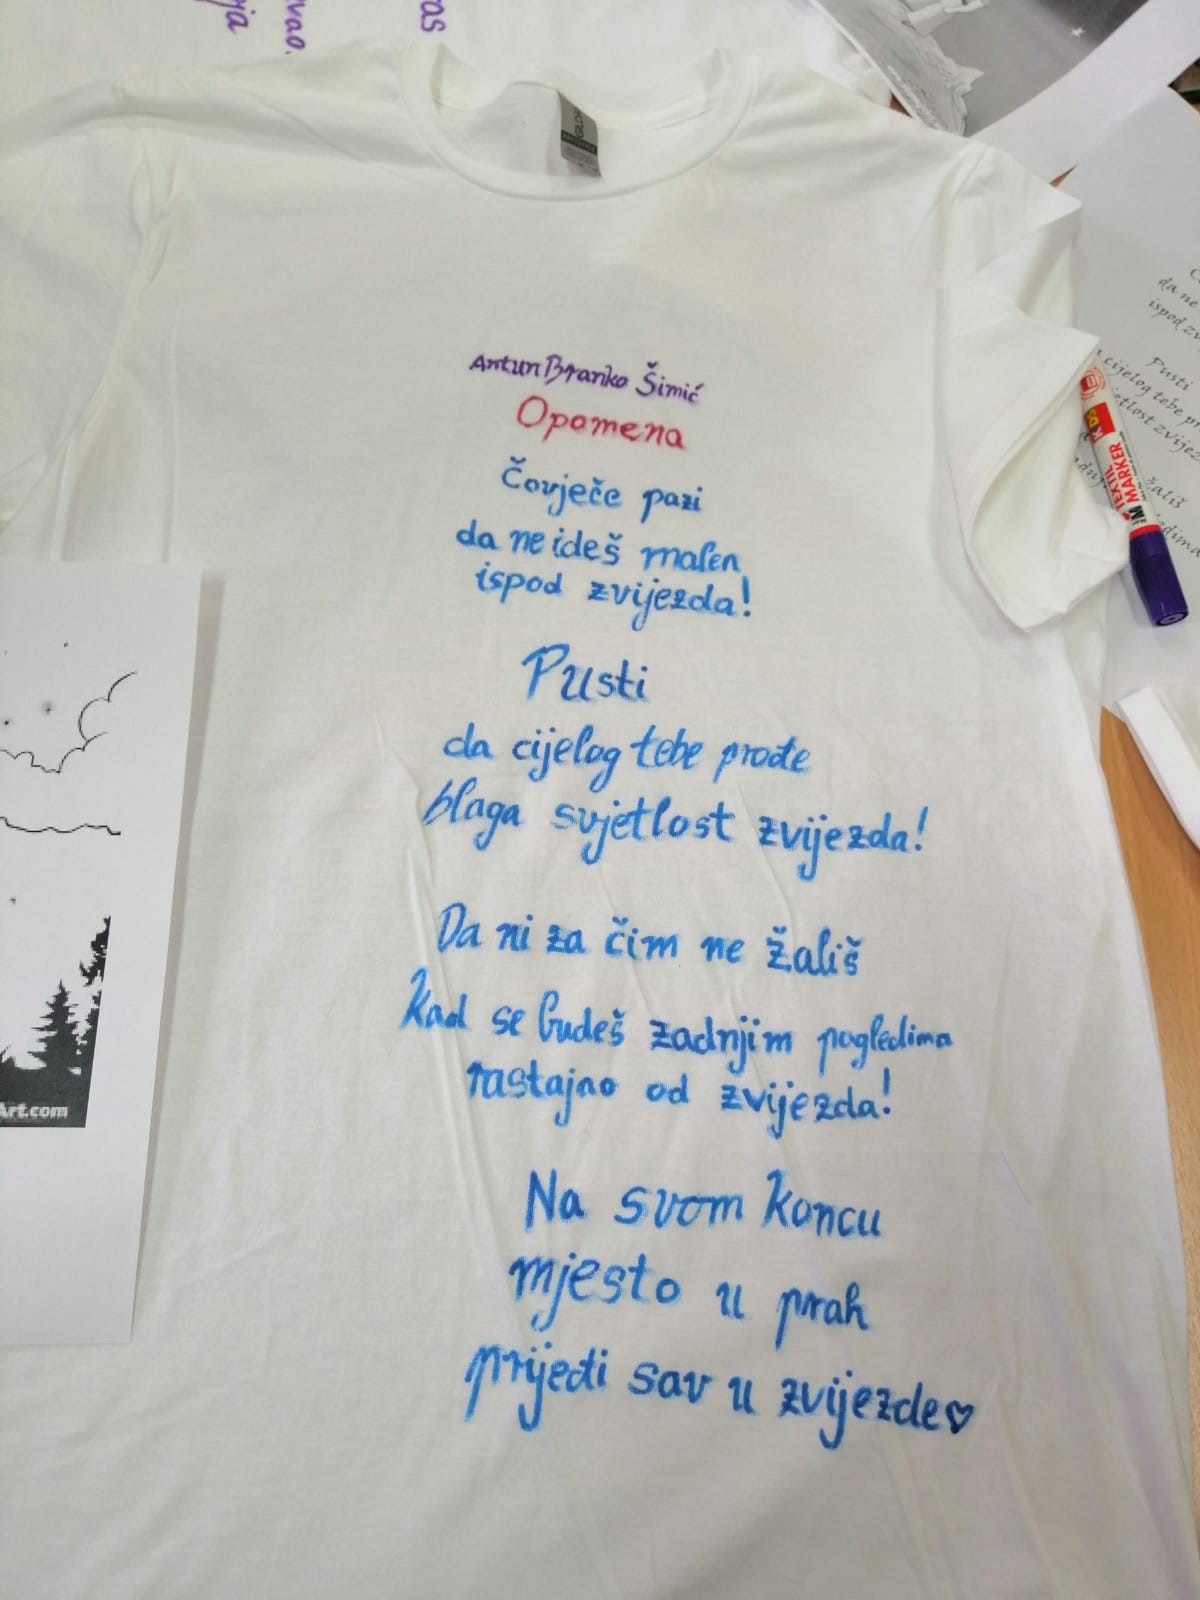 ras
vao.
ja
GILDAN
Antun Branko Šimić
Opomena
Čovječe pazi
da ne ideš malen
ispod zvijezda!
Pusti
da cijelog tebe prođe
blaga svjetlost zvijezda!
Da ni za čim ne žališ
Kad se budeš zadnjim pogledima
rastajao od zvijezda!
Na svom koncu
mjesto u prah
prijeđi sav u zvijezde
da ne
ispod zv
Pusti
cijelog tebe pr
jetlost zvijez
žališ
edima
TEXTIL
MARKER
Art.com